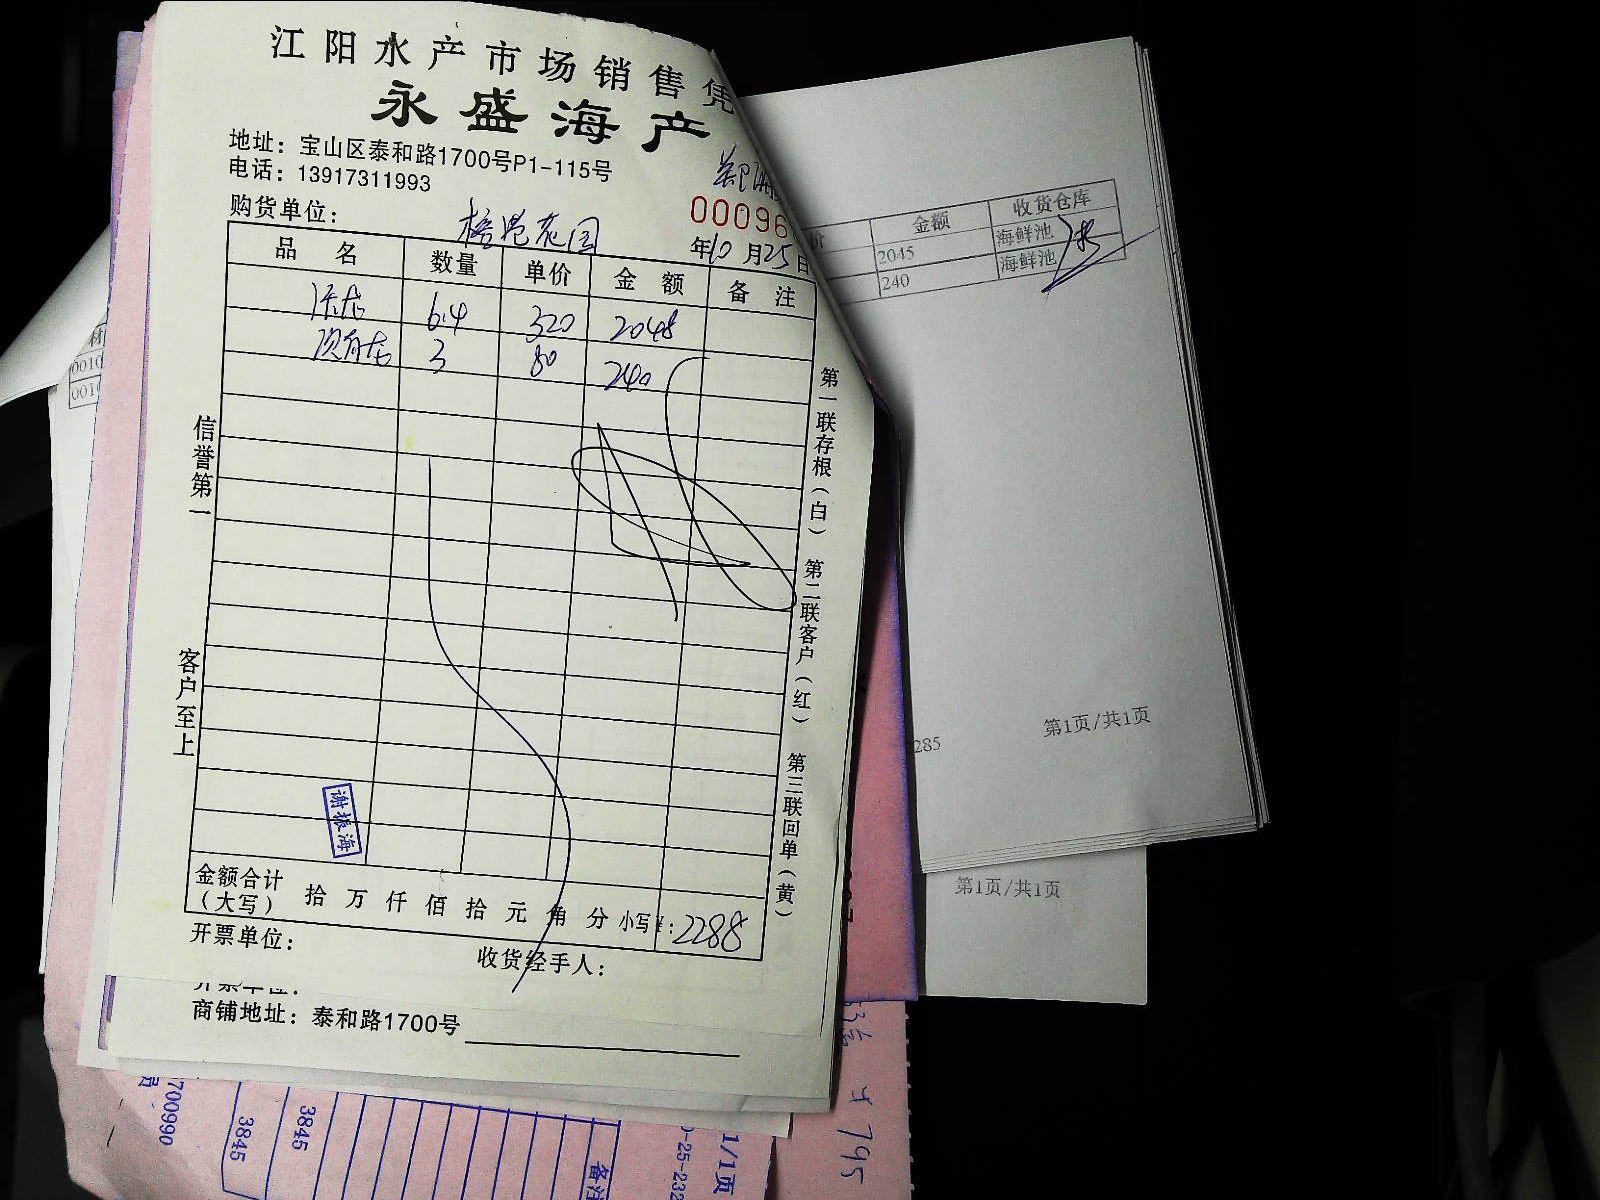 江阳水产市场销售凭
永盛海产
地址：宝山区泰和路1700号P1-115号
电话：13917311993
购货单位：
00096
年10月25日
品 名 数量 单价 金 额 备 注
6.4 320 2048
3 80 240
信誉第一
客户至上
第一联存根（白） 第二联客户（红） 第三联回单（黄）
谢振海
金额合计（大写） 拾 万 仟 佰 拾 元 角 分 小写¥：2288
开票单位：
收货经手人：
开票单位：
商铺地址：泰和路1700号
价 金额 收货仓库
2045 海鲜池
240 海鲜池
285
第1页/共1页
第1页/共1页
材
0010
0010
700990
3845
3845
备注
1/1页
795